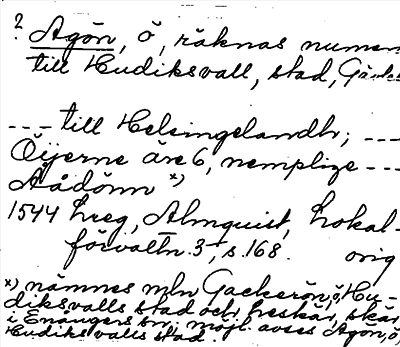 ? Agön, ö, räknas numera
till Hudiksvall, stad, Gävleb
--- till Helsingelandh; ---
Öijerne äre 6, nemplige ---
Aådönn x)
1544 hreg, Almquist, Lokal-
förvaltn. 3, s. 168. orig
x) nämnes mln Gackerön, ö, Hu-
diksvalls stad och Leskär, skär
i Enångers sn. möjl. avses Agön, ö,
Hudiksvalls stad.